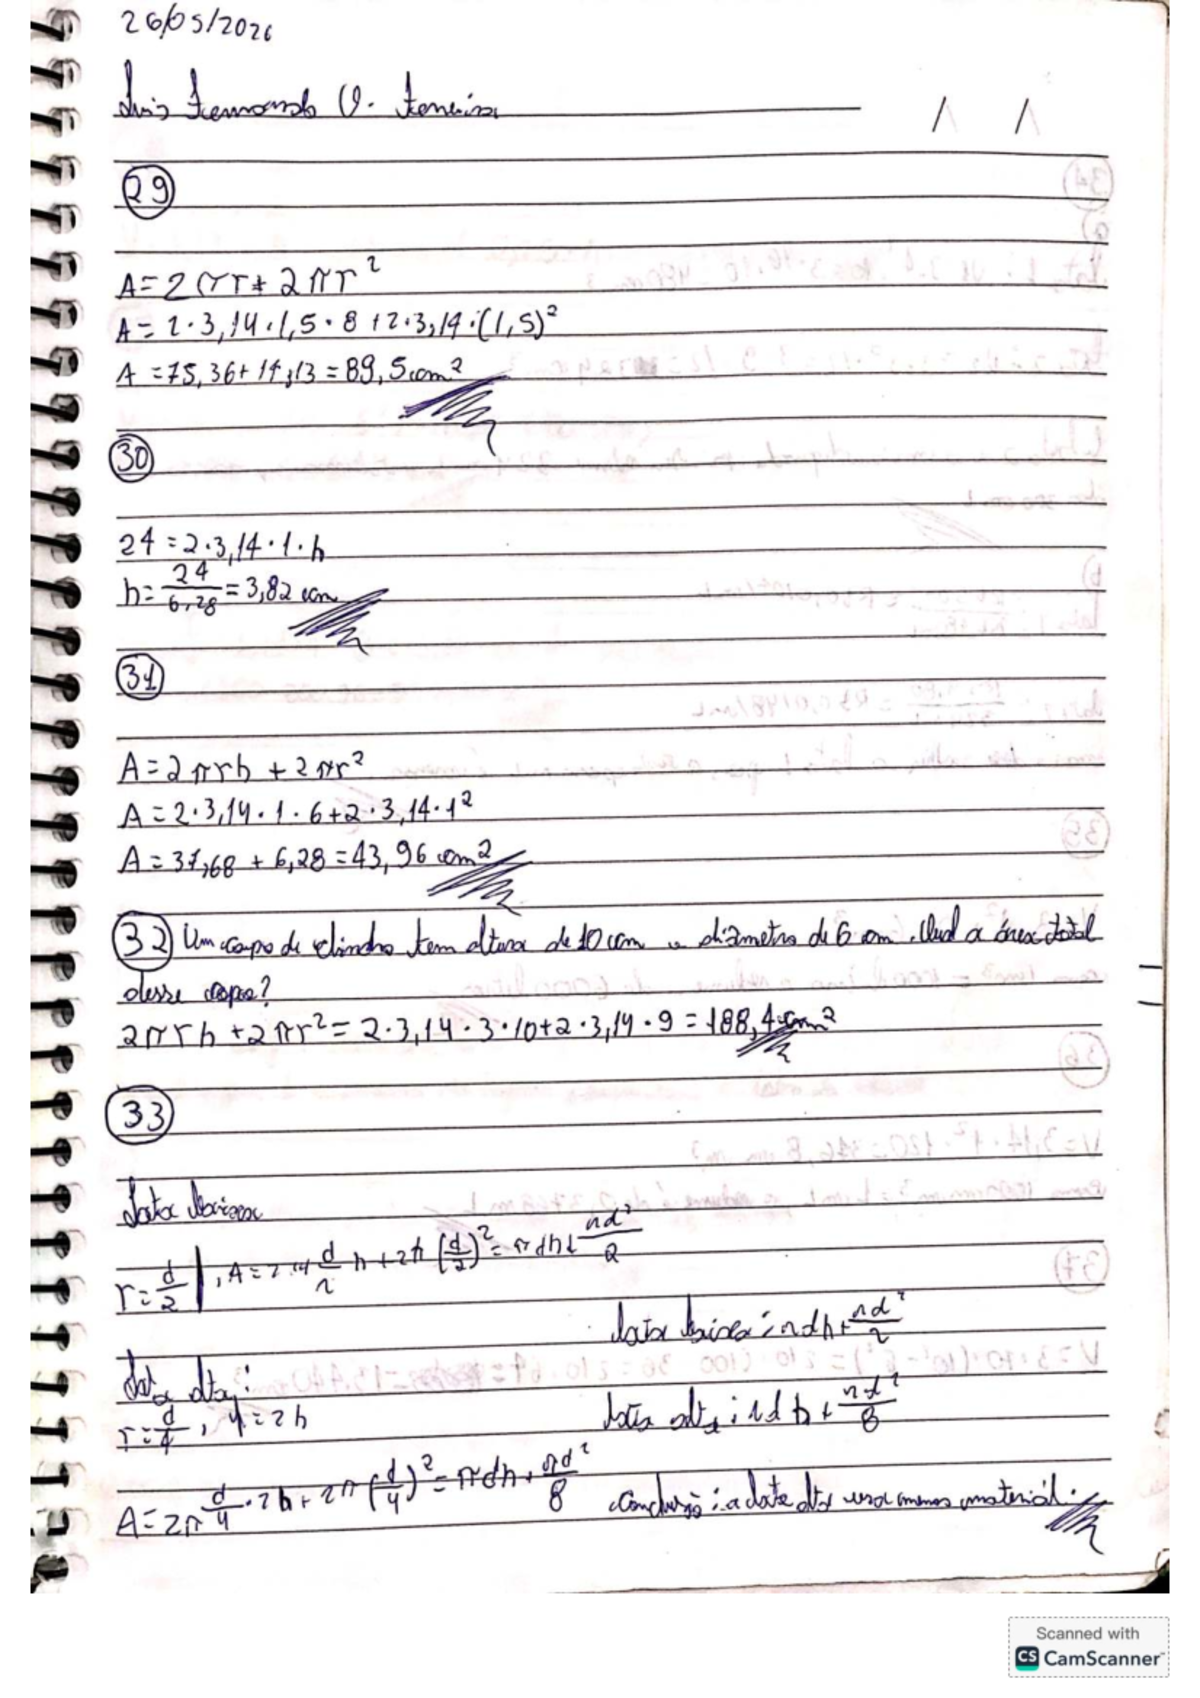 26/05/2026
Luis Fernando O. Ferreira
/ /
29
A=2πr+2πr²
A=2·3,14·1,5·8+2·3,14·(1,5)²
A=75,36+14,13=89,5cm²
30
24=2·3,14·1·h
h=24/6,28=3,82 cm
31
A=2πrh+2πr²
A=2·3,14·1·6+2·3,14·1²
A=37,68+6,28=43,96 cm²
32 Um copo de cilindro tem altura de 10 cm e diâmetro de 6 cm. Qual a área total
desse copo?
2πrh+2πr²=2·3,14·3·10+2·3,14·9=188,4 cm²
33
lata baixa
r=d/2, A=2·π d/2 h+2π(d/2)²=πdh+πd²/2
lata baixa: πdh+πd²/2
lata alta:
r=d/4, 4=2h
lata alta: πdh+πd²/8
A=2π d/4·2h+2π(d/4)²=πdh+πd²/8
conclusão: a lata alta usa menos material.
Scanned with
CS CamScanner